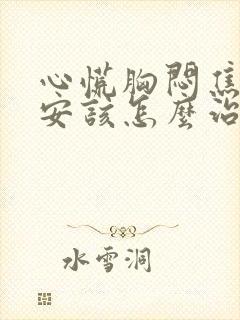 心慌胸悶焦
安該怎麼治
水雪洞